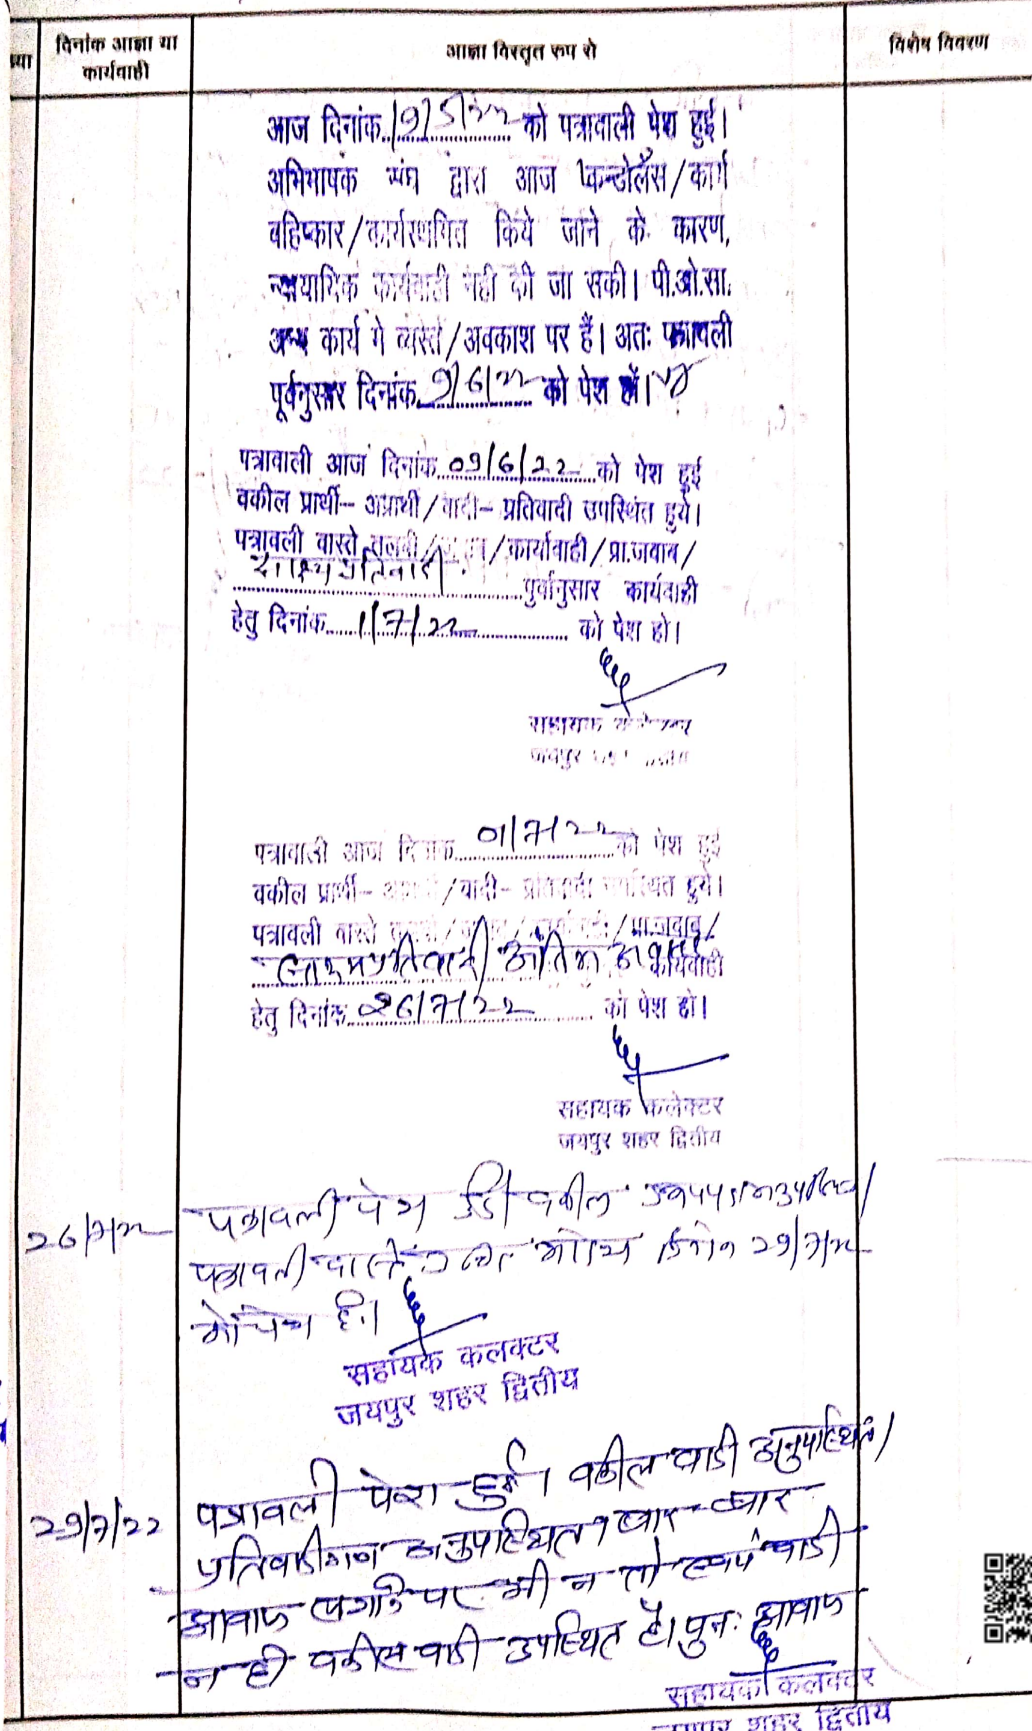 दिनांक आज्ञा या
कार्यवाही
आज्ञा विस्तृत रुप से
विशेष विवरण
आज दिनांक 19/5/22 को पत्रावाली पेश हुई।
अभिभाषक संघ द्वारा आज कन्डोलेंस/कार्य
बहिष्कार/कार्यस्थगित किये जाने के कारण,
न्यायायिक कार्यवाही नही की जा सकी। पी.ओ.सा.
अन्य कार्य मे व्यस्त/अवकाश पर हैं। अतः पत्रावली
पूर्वनुसार दिनांक 9/6/22 को पेश हों।
पत्रावाली आज दिनांक 09/6/22 को पेश हुई
वकील प्रार्थी- अप्रार्थी/वादी- प्रतिवादी उपस्थित हुये।
पत्रावली वास्ते तलबी/ /कार्यावाही/प्रा.जवाब/
साक्ष्य प्रतिवादी पुर्वानुसार कार्यवाही
हेतु दिनांक 1/7/22 को पेश हो।
सहायक कलेक्टर
जयपुर
पत्रावाली आज दिनांक 01/7/22 को पेश हुई
वकील प्रार्थी- /वादी- प्रतिवादी उपस्थित हुये।
पत्रावली वास्ते /प्रा.जवाब/
साक्ष्य प्रतिवादी अंतिम अवसर कार्यवाही
हेतु दिनांक 26/7/22 को पेश हो।
सहायक कलेक्टर
जयपुर शहर द्वितीय
26/7/22 पत्रावली पेश हुई। वकील
पत्रावली वास्ते दिनांक 29/7/22
को पेश हो।
सहायक कलक्टर
जयपुर शहर द्वितीय
29/7/22 पत्रावली पेश हुई। वकील वादी अनुपस्थित।
प्रतिवादीगण अनुपस्थित। बार-बार
आवाज लगाने पर भी न तो स्वयं वादी
न ही वकील वादी उपस्थित है। पुनः आवाज
सहायक कलक्टर
जयपुर शहर द्वितीय